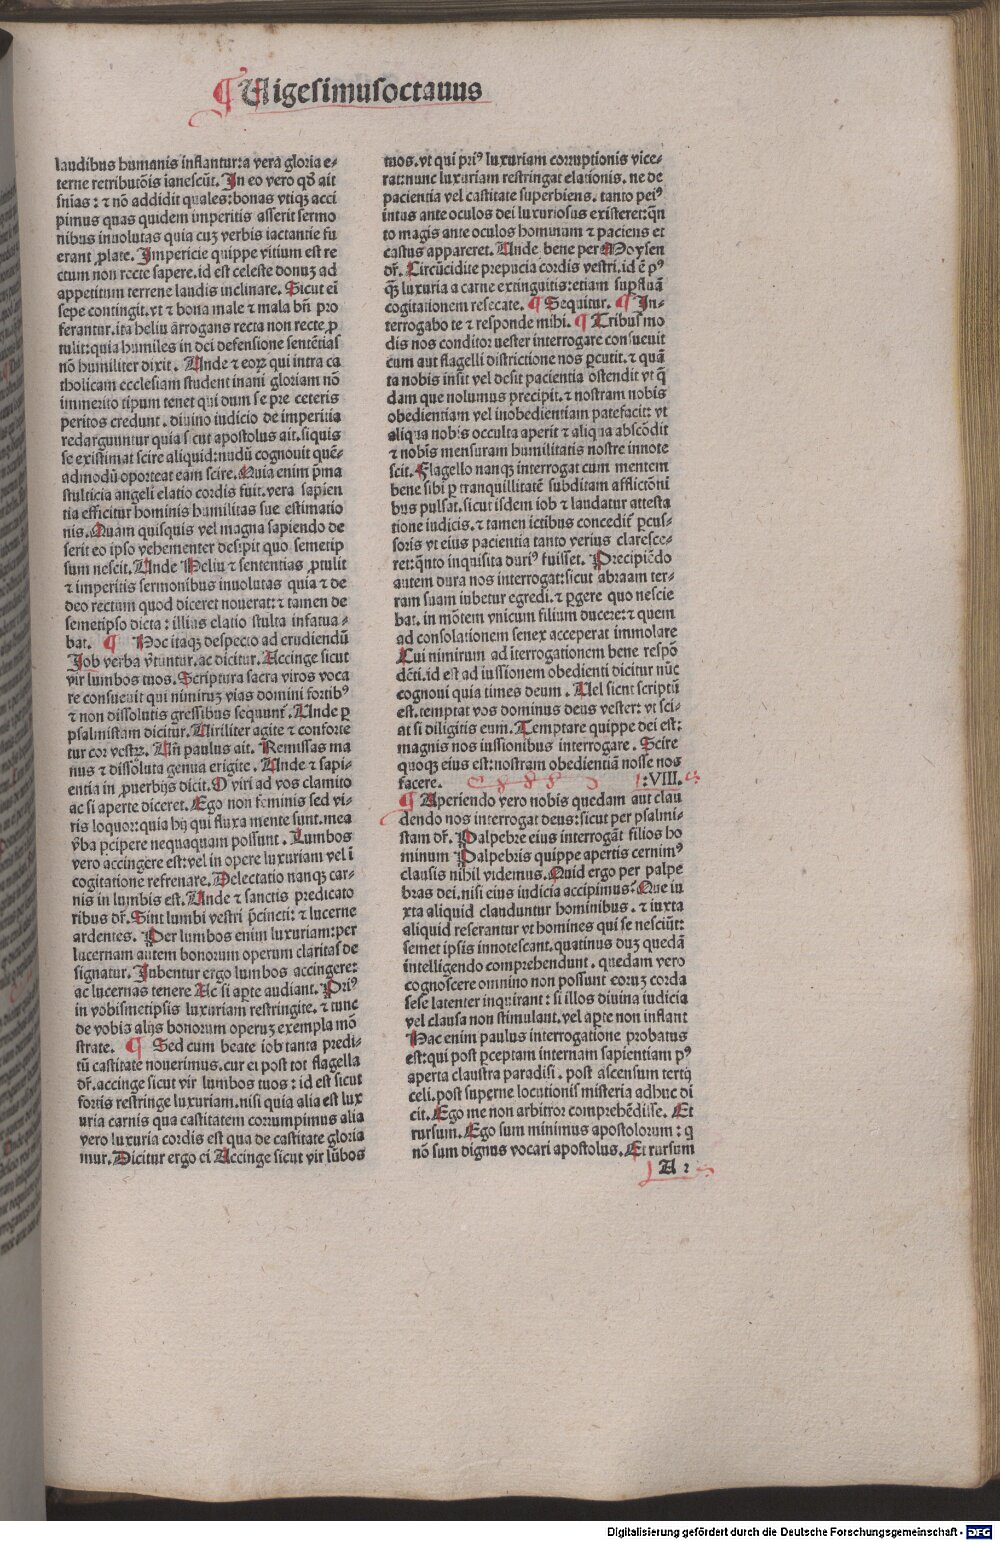 ¶ Uigesimusoctauus
laudibus humanis inflantur: a vera gloria e-
terne retributõis ianescũt. In eo vero qđ ait
snĩas: ⁊ nõ addidit quales: bonas vtiqꝫ acci
pimus quas quidem imperitis asserit sermo
nibus inuolutas quia cuꝫ verbis iactantie fu
erant ꝓlate. Impericie quippe vitium est re
ctum non recte sapere. id est celeste donuꝫ ad
appetitum terrene laudis inclinare. Sicut eĩ
sepe contingit. vt ⁊ bona male ⁊ mala bñ pro
ferantur. ita heliu ãrrogans recta non recte ꝓ
tulit: quia humiles in dei defensione sentẽtias
nõ humiliter dixit. Unde ⁊ eoꝝ qui intra ca
tholicam ecclesiam student inani gloriam nõ
immerito tipum tenet qui dum se pre ceteris
peritos credunt. diuino iudicio de imperitia
redarguuntur quia sicut apostolus ait. siquis
se existimat scire aliquid: nudũ cognouit quẽ-
admodũ oporteat eam scire. Quia enim p̃ma
stulticia angeli elatio cordis fuit. vera sapien
tia efficitur hominis humilitas sue estimatio
nis. Quam quisquis vel magna sapiendo de
serit eo ipso vehementer desipit quo semetip
sum nescit. Unde Heliu ⁊ sententias ꝓtulit
⁊ imperitis sermonibus inuolutas quia ⁊ de
deo rectum quod diceret nouerat: ⁊ tamen de
semetipso dicta: illius elatio stulta infatua-
bat. ¶ Hoc itaqꝫ despecto ad erudiendũ
Job verba ṽtuntur. ac dicitur. Accinge sicut
vir lumbos tuos. Scriptura sacra viros voca
re consueuit qui nimiruꝫ vias domini fortibꝰ
⁊ non dissolutis gressibus sequunt᷑. Unde ꝑ
psalmistam dicitur. Uiriliter agite ⁊ conforte
tur cor vestꝝ. Uñ paulus ait. Remissas ma
nus ⁊ dissoluta genua erigite. Unde ⁊ sapi-
entia in ꝓuerbijs dicit. O viri ad vos clamito
ac si aperte diceret. Ego non feminis sed vi-
ris loquor: quia hij qui fluxa mente sunt. mea
ṽba ꝑcipere nequaquam possunt. Lumbos
vero accingere est: vel in opere luxuriam vel ĩ
cogitatione refrenare. Delectatio nanqꝫ car-
nis in lumbis est. Unde ⁊ sanctis predicato
ribus dr̃. Sint lumbi vestri p̃cincti: ⁊ lucerne
ardentes. Per lumbos enim luxuriam: per
lucernam autem bonorum operum claritas de
signatur. Jubentur ergo lumbos accingere:
ac lucernas tenere Ac si apꝛte audiant. Priꝰ
in vobismetipsis luxuriam restringite. ⁊ tunc
de vobis alijs bonorum operuꝫ exempla mõ
strate. ¶ Sed cum beate iob tanta predi-
tũ castitate nouerimus. cur ei post tot flagella
dr̃. accinge sicut vir lumbos tuos: id est sicut
fortis restringe luxuriam. nisi quia alia est lux
uria carnis qua castitatem corrumpimus alia
vero luxuria cordis est qua de castitate gloria
mur. Dicitur ergo ei Accinge sicut vir lũbos
tuos. vt qui priꝰ luxuriam corruptionis vice-
rat: nunc luxuriam restringat elationis. ne de
pacientia vel castitate superbiens. tanto peiꝰ
intus ante oculos dei luxuriosus existeret: q̃n
to magis ante oculos hominum ⁊ paciens et
castus appareret. Unde bene per Moysen
dr̃. Circũcidite prepucia cordis vestri. id ẽ pꝰ
q̃ꝫ luxuria a carne extinguitis: etiam supfluã
cogitationem resecate. ¶ Sequitur. ¶ In-
terrogabo te ⁊ responde mihi. ¶ Tribus mo
dis nos conditor: uester interrogare consueuit
cum aut flagelli districtione nos ꝑcutit. ⁊ quã
ta nobis insit vel desit pacientia ostendit vt q̃
dam que nolumus precipit. ⁊ nostram nobis
obedientiam vel inobedientiam patefacit: vt
aliqua nobis occulta aperit ⁊ aliqua abscõdit
⁊ nobis mensuram humilitatis nostre innote
scit. Flagello nanqꝫ interrogat cum mentem
bene sibi ꝑ tranquillitatẽ subditam afflictõni
bus pulsat. sicut isdem iob ⁊ laudatur attesta
tione iudicis. ⁊ tamen ictibus concedit᷑ ꝑcus-
soris vt eius pacientia tanto verius claresce-
ret: q̃nto inquisita duriꝰ fuisset. Precipiẽdo
autem dura nos interrogat: sicut abraam ter-
ram suam iubetur egredi. ⁊ ꝑgere quo nescie
bat. in mõtem vnicum filium ducere: ⁊ quem
ad consolationem senex acceperat immolare
Cui nimirum ad ĩterrogationem bene respõ
dẽti. id est ad iussionem obedienti dicitur nũc
cognoui quia times deum. Uel sicut scriptũ
est. temptat vos dominus deus vester: vt sci-
at si diligitis eum. Temptare quippe dei est:
magnis nos iussionibus interrogare. Scire
quoqꝫ eius est: nostram obedientiã nosse nos
facere. :VIII.
¶ Aperiendo vero nobis quedam aut clau
dendo nos interrogat deus: sicut per psalmi-
stam dr̃. Palpebre eius interrogãt filios ho
minum Palpebris quippe apertis cernimꝰ
clausis nihil videmus. Quid ergo per palpe
bras dei. nisi eius iudicia accipimus? Que iu
xta aliquid clauduntur hominibus. ⁊ iuxta
aliquid reserantur vt homines qui se nesciũt:
semet ipsis innotescant. quatinus duꝫ quedã
intelligendo comprehendunt. quedam vero
cognoscere omnino non possunt eoruꝫ corda
sese latenter inquirant: si illos diuina iudicia
vel clausa non stimulant. vel apꝛte non inflant
Hac enim paulus interrogatione probatus
est: qui post ꝑceptam internam sapientiam pꝰ
aperta claustra paradisi. post ascensum tertij
celi. post superne locutionis misteria adhuc di
cit. Ego me non arbitror comprehẽdisse. Et
rursum. Ego sum minimus apostolorum: q
nõ sum dignus vocari apostolus. Et rursum
A 2
Digitalisierung gefördert durch die Deutsche Forschungsgemeinschaft - DFG